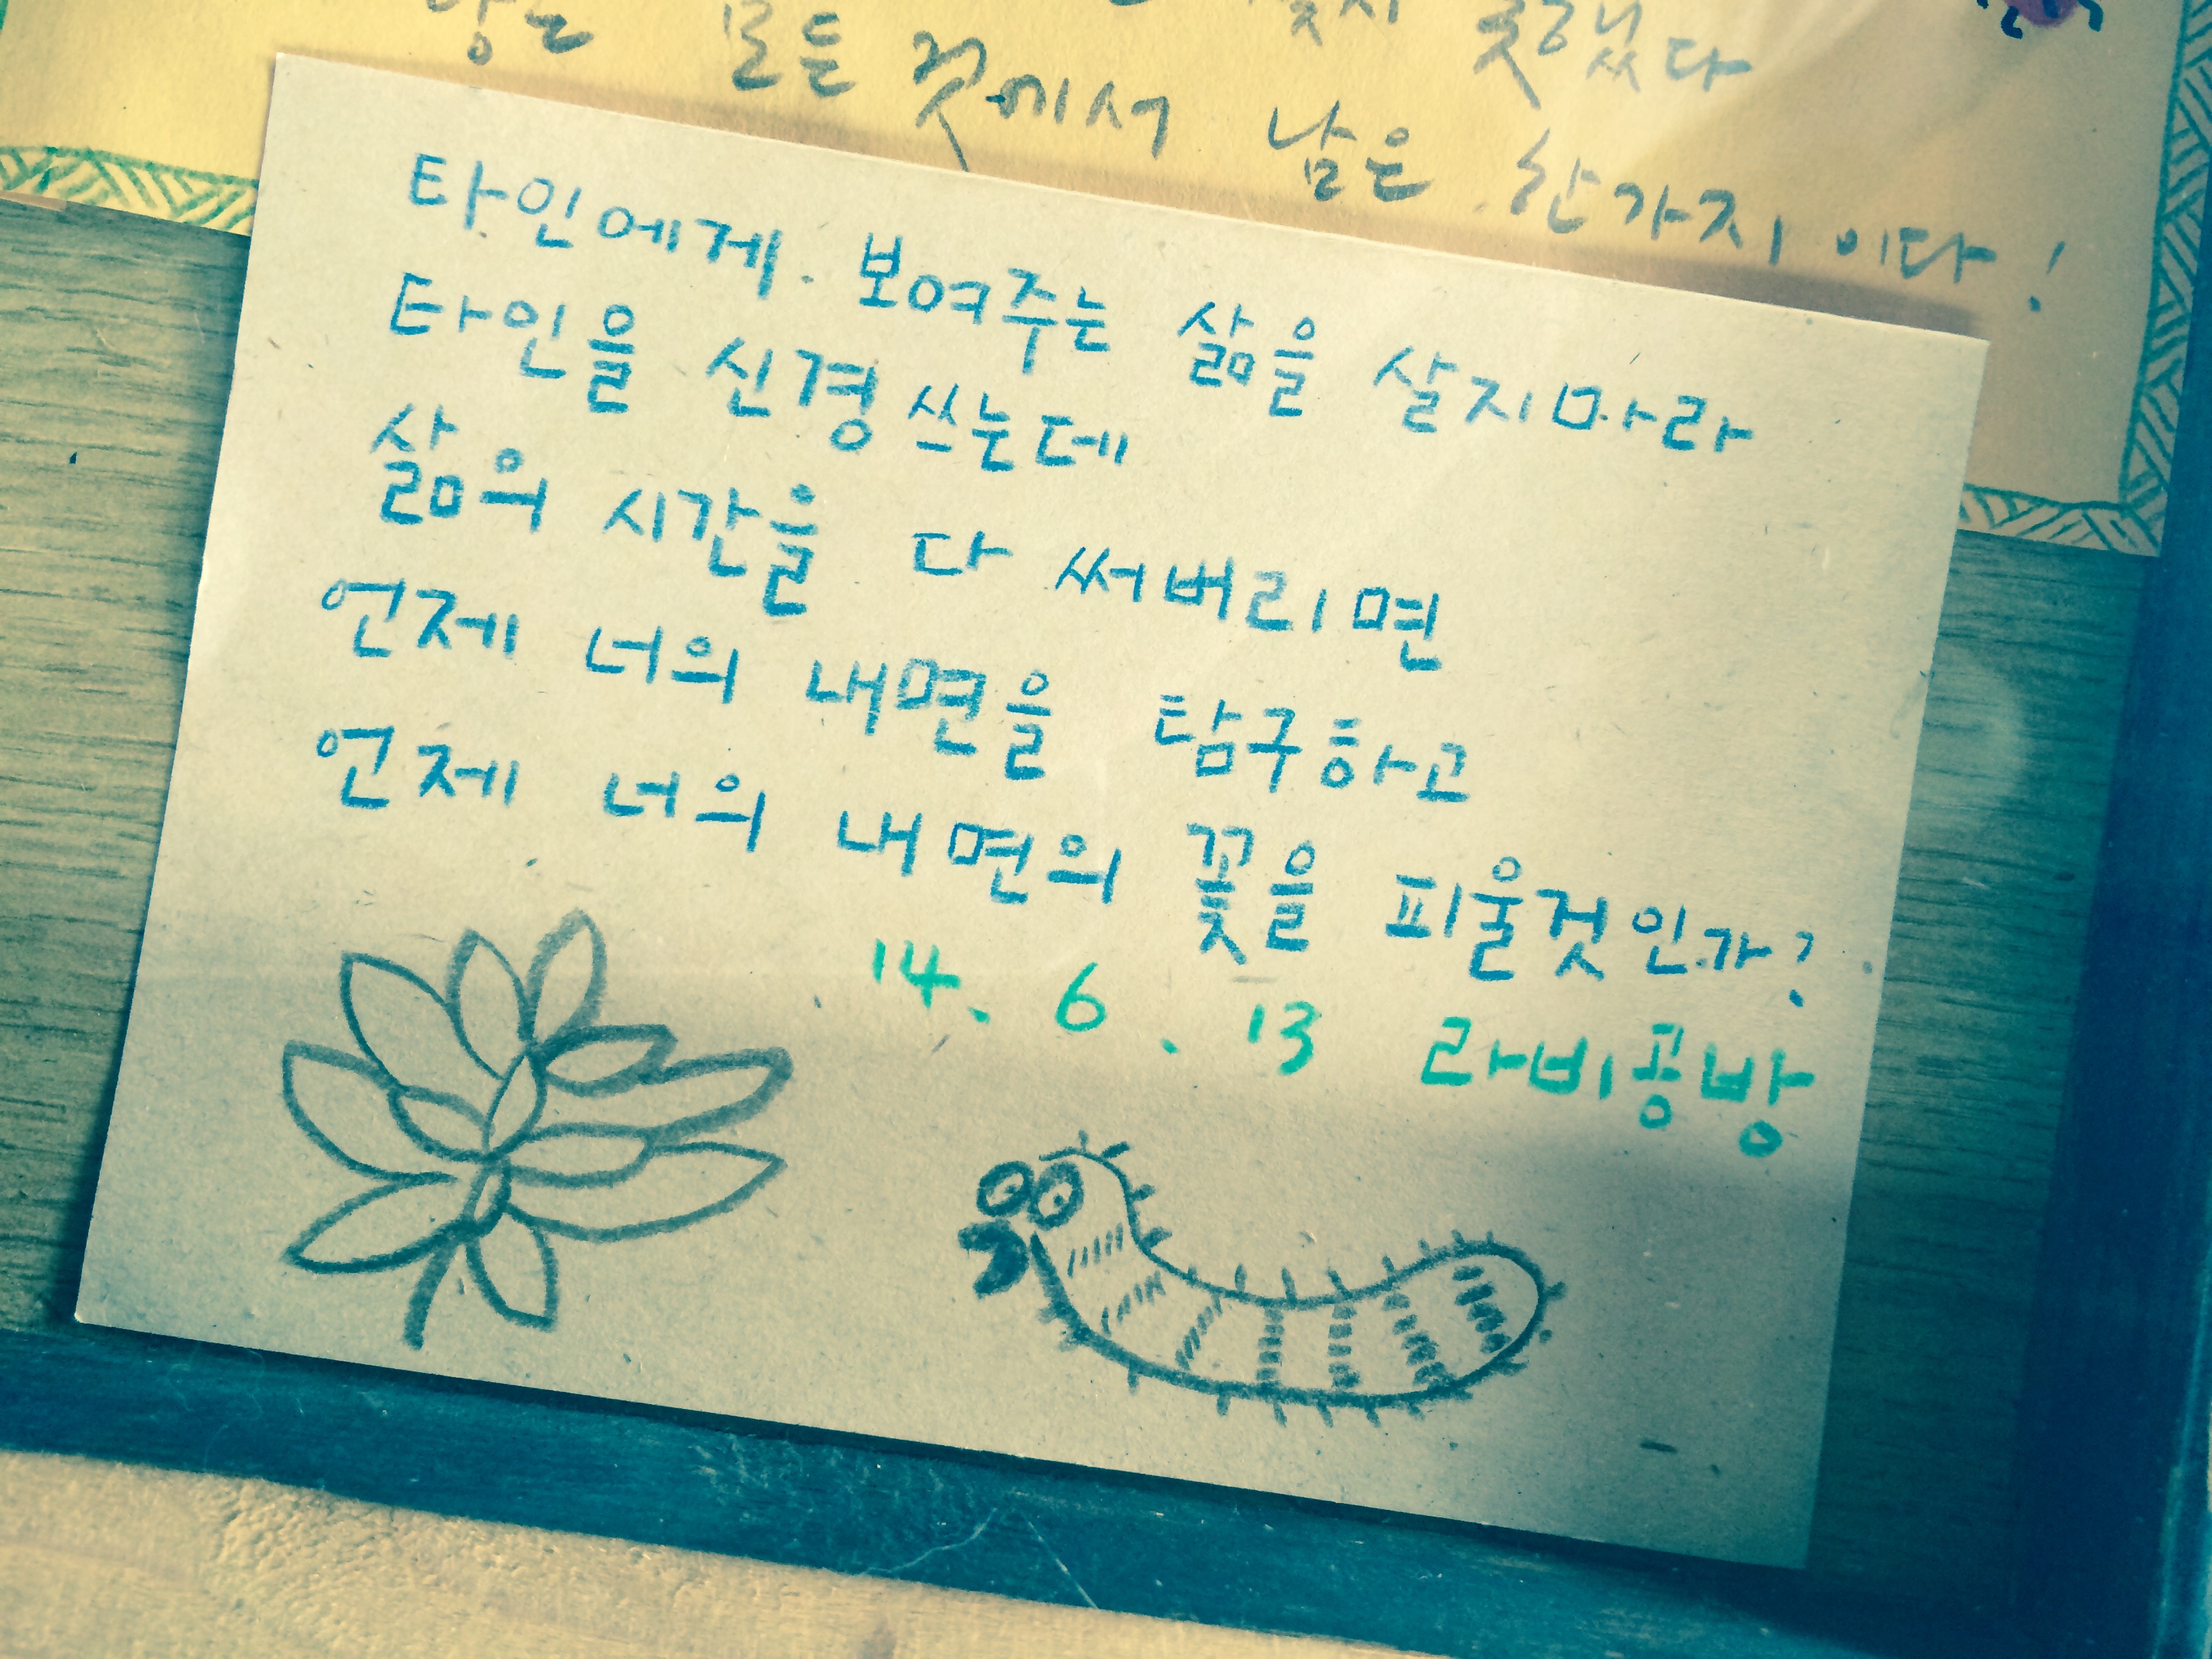 모든 것에서 남은 한가지 이다!
타인에게. 보여주는 삶을 살지마라
타인을 신경쓰는데
삶의 시간을 다 써버리면
언제 너의 내면을 탐구하고
언제 너의 내면의 꽃을 피울것인가?
14. 6. 13 라비공방